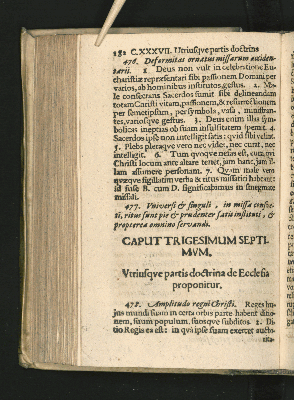 152 C. XXXVII. Utriusque partis doctrina
476. Deformitas ornatus missarum acciden-
tarii. 1. Deus non vult in celebratione Eu-
charistiæ repræsentari sibi passionem Domini per
varios, ab hominibus institutos, gestus. 2.
le consecrans Sacerdos sumit sibi delineandam
totam Christi vitam, passionem, & resurrectionem
per semetipsum, per symbola, vasa, ministran-
tes, variosque gestus. 3. Deus enim illas sym-
bolicas ineptias ob suam insulsitatem spernit. 4.
Sacerdos ipse non intelligit satis: quid sibi velit.
5. Plebs pleraque vero nec videt, nec curat, nec
intelligit. 6. Tum quoque nefas est, cum qui
Christi locum ante altare tenet, jam hanc, jam il-
lam assumere personam. 7. Quam male vero
quæque sigillatim verba & ritus missatici habeant:
id suse B. cum D. significabimus in ænigmate
missali.
477. Universi & singuli, in missa consue-
ti, ritus sunt pie & prudenter satis instituti, &
propterea omnino servandi.
CAPUT TRIGESIMUM SEPTI-
MUM.
Utriusque partis doctrina de Ecclesia
proponitur.
478. Amplitudo regni Christi. Reges hu-
jus mundi suum in certa orbis parte habent ditio-
nem, suum populum, suosque subditos. 2. Di-
tio Regis ea est: in qua ipse suam exercet aucto-